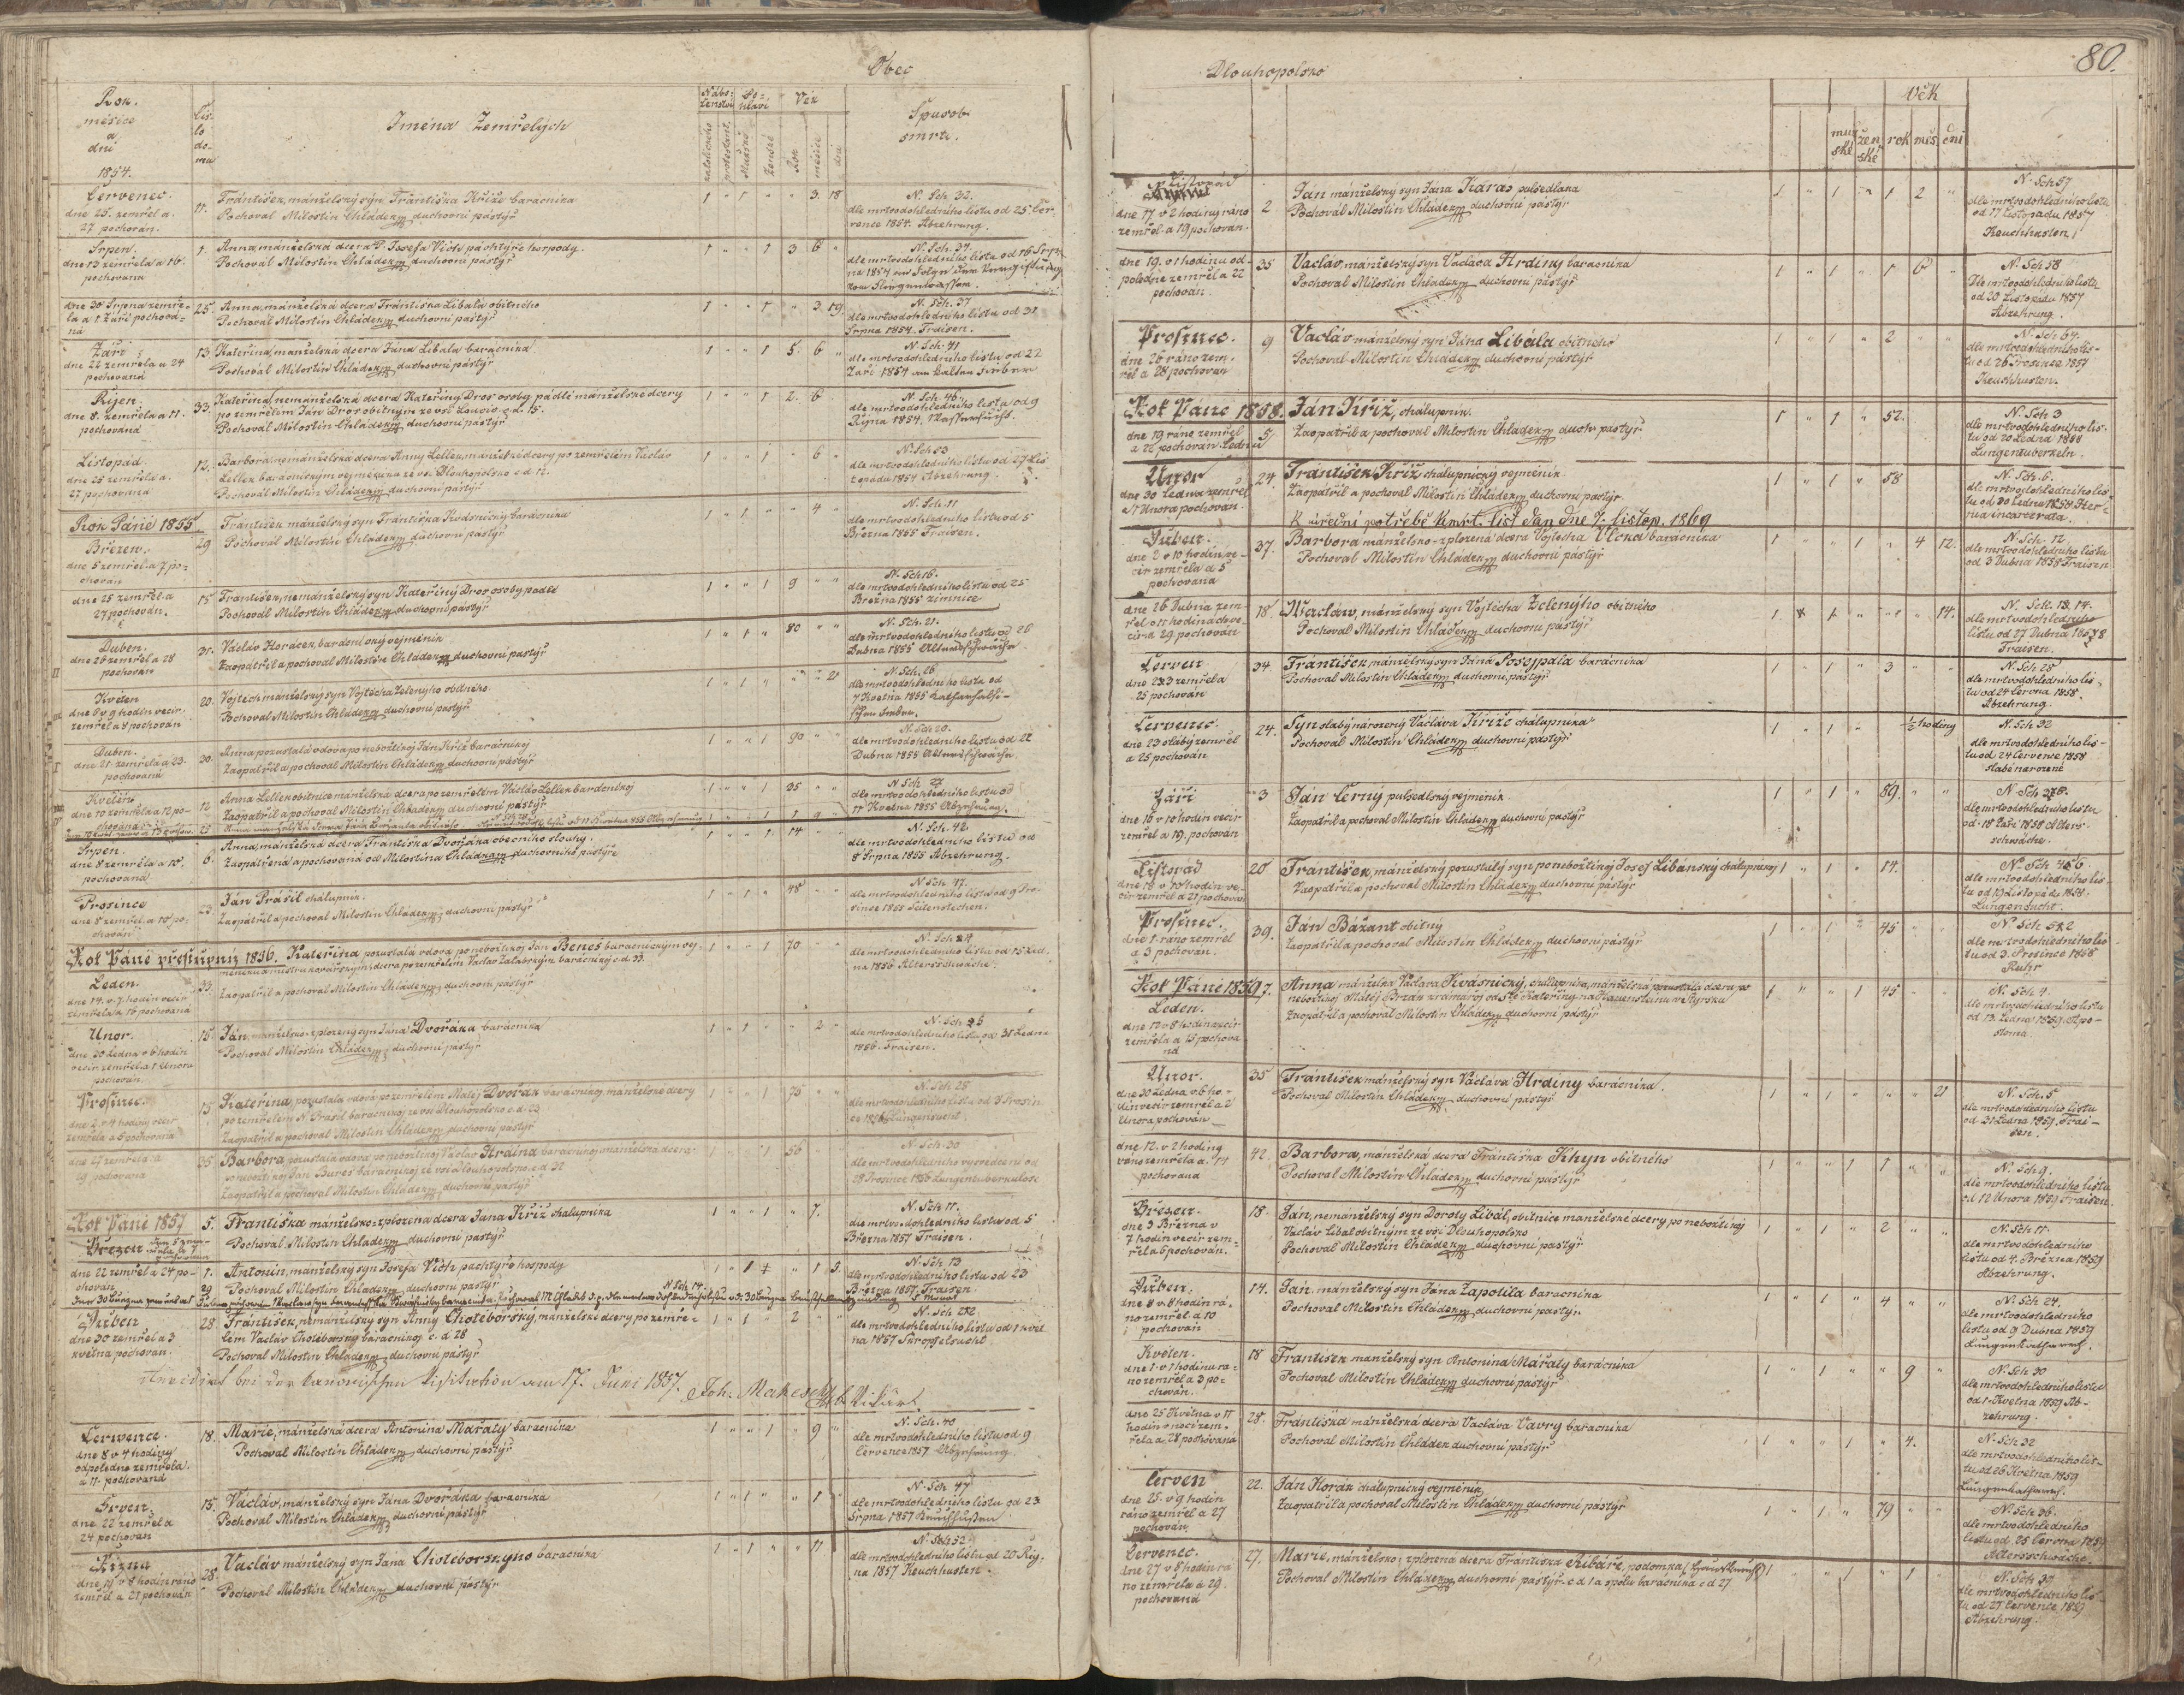 Obec
Rok.
měsíce
a
dni
1854.
Čís-
lo
do-
mu
Jména Zemřelých
Nábo-
ženství
Po-
hlaví
Věk
katolického
protestant.
Mužské
Ženské
Rok
měsíce
dni
Spusob
smrti.
Červenec.
dne 25. zemřel a.
27 pochován.
11.
František, manželský syn Františka Kříže baráčníka
Pochoval Milostín Chládek duchovní pastýř
1 " 1 " " 3. 18
N. Sch. 32.
dle mrtvoohledního listu od 25 Čer-
vence 1854. Abzehrung.
Srpen.
dne 13 zemřela a 16.
pochovaná
1.
Anna, manželská dcera Josefa Vich pachtýře hospody.
Pochoval Milostín Chládek duchovní pastýř
1 " " 1 3 6 "
dle mrtvoohledního listu od 16 Srp-
na 1854
dne 30 Srpna zemře-
la a 1 Září pochova-
ná
25.
Anna, manželská dcera Františka Libala obitného
Pochoval Milostín Chládek duchovní pastýř
1 " " 1 " 3 19.
N. Sch. 37
dle mrtvoohledního listu od 31
Srpna 1854. Fraisen.
Září
dne 22 zemřela a 24
pochovaná
13.
Kateřina, manželská dcera Jana Libala baráčníka
Pochoval Milostín Chládek duchovní pastýř
1 " " 1 5. 6 "
N. Sch. 41
dle mrtvoohledního listu od 22
Září 1854
Říjen.
dne 8. zemřela a 11.
pochovaná
33.
Kateřina, nemanželská dcera Kateřiny Dros osoby padlé manželské dcery
po zemřelém Jan Dros obitným ze vsi Loučic č.d. 15.
Pochoval Milostín Chládek duchovní pastýř
1 " " 1 2. 6
N. Sch. 46.
dle mrtvoohledního listu od 9
Října 1854. Wassersucht.
Listopad.
dne 25 zemřela a.
27 pochovaná
12.
Barbora, nemanželská dcera Anny Lellek, manželské dcery po zemřelém Václav
Lellek baráčnickým vejměnku ze vsi Dlouhopolsko č.d. 12.
Pochoval Milostín Chládek duchovní pastýř
1 " " 1 " 6 "
N. Sch 53
dle mrtvoohledního listu od 27 Lis-
topadu 1854 Abzehrung.
Rok Páně 1855
Březen.
dne 5 zemřel. a 7 po-
chován
29
František manželský syn Františka Kvasnický baráčníka
Pochoval Milostín Chládek duchovní pastýř
1 " 1 " " 4 "
N. Sch. 11
dle mrtvoohledního listu od 5
Března 1855 Fraisen.
dne 25 zemřel a
27 pochován.
15
František, nemanželský syn Kateřiny Dros osoby padlé
Pochoval Milostín Chládek duchovní pastýř
N. Sch 16.
dle mrtvoohledního listu od 25
Března 1855 zimnice
Duben.
dne 26 zemřel a 28
pochován
31.
Václav Horáček, baráčnický vejměník
Zaopatřil a pochoval Milostín Chládek duchovní pastýř
1 " 1 " 80 " "
N. Sch. 21.
dle mrtvoohledního listu od 26
Dubna 1855 Altersschwäche
Květen
dne 6 v 9 hodin večír
zemřel a 8 pochován
20.
Vojtěch manželský syn Vojtěcha Zelenýho obitného
Pochoval Milostín Chládek duchovní pastýř
N. Sch. 26
dle mrtvoohledního listu od
7 Května 1855
Duben.
dne 21. zemřela a 23.
pochovaná
20.
Anna pozustalá vdova po nebožtíkoj Jan Kříž baráčníkoj
Zaopatřil a pochoval Milostín Chládek duchovní pastýř
1 " " 1 90 " "
N. Sch 20.
dle mrtvoohledního listu od 22
Dubna 1855 Altersschwäche.
Květen
dne 10 zemřela a 12 po-
chovaná.
12
Anna Lellek obitnice manželská dcera po zemřelém Václav Lellek baráčníkoj
Zaopatřil a pochoval Milostín Chládek duchovní pastýř
1 " " 1 25 " "
N Sch 27
dle mrtvoohledního listu od
11 Května 1855 Abzehrung.
Srpen.
dne 8 zemřela a 10.
pochovaná
6.
Anna, manželská dcera Františka Dvořáka obecního slouhy.
Zaopatřená a pochovaná od Milostína Chládka duchovního pastýře
1 " " 1 14 " "
N. Sch. 42.
dle mrtvoohledního listu od
8 Srpna 1855 Abzehrung.
Prosince
dne 8 zemřel. a 10 po-
chován
23.
Ján Prášil chalupník.
Zaopatřil a pochoval Milostín Chládek duchovní pastýř
1 " 1 " 48 " "
N Sch 47.
dle mrtvoohledního listu od 9 Pro-
since 1855 Seitenstechen.
Rok Páně přestupný 1856.
Kateřina pozustalá vdova po nebožtíkoj Ján Beneš baráčnickým vej-
Leden.
dne 14. v 7 hodin večír
zemřela a 16 pochovaná
33.
Zaopatřil a pochoval Milostín Chládek duchovní pastýř
1 " " 1 70 " "
dle mrtvoohledního listu od 15 Led-
na 1856 Altersschwäche.
Únor.
dne 30 Ledna v 6 hodin
večír zemřel a 1 Února
pochován
15.
Ján, manželsko-zplozený syn Jána Dvořáka baráčníka
Pochoval Milostín Chládek duchovní pastýř
1 " 1 " " 2 "
dle mrtvoohledního listu od 31 Ledna
1856. Fraisen.
Prosinec.
dne 2. v 4 hodiny večír
zemřela a 5 pochovaná
15
Kateřina, pozustalá vdova po zemřelém Matěj Dvořák baráčníkoj, manželské dcery
po zemřelém N. Prášil baráčníkoj ze vsi Dlouhopolsko č.d. 23
Zaopatřil a pochoval Milostín Chládek duchovní pastýř
1 " " 1 75 " "
N. Sch 28
dle mrtvoohledního listu od 3 Prosin-
ce 1856. Lungensucht.
dne 27 zemřela a
29 pochovaná
35
Barbora, pozustalá vdova po nebožtíkoj Václav Hrdina baráčníkoj manželská dcera
po nebožtíkoj Ján Bureš baráčníkoj ze vsi Dlouhopolsko č.d. 32
Zaopatřil a pochoval Milostín Chládek duchovní pastýř
1 " " 1 56 " "
N. Sch. 30
dle mrtvoohledního vysvědčení od
28 Prosince 1856 Lungentuberkulose
Rok Páně 1857
Březen
5.
Františka manželsko-zplozená dcera Jana Kříž chalupníka
Pochoval Milostín Chládek duchovní pastýř
1 " " 1 " 7. "
N. Sch. 11.
dle mrtvoohledního listu od 5
Března 1857 Fraisen.
dne 22 zemřel a 24 po-
chován
1.
Antonín, manželský syn Josefa Vich pachtýře hospody
Pochoval Milostín Chládek duchovní pastýř
N. Sch. 13
dle mrtvoohledního listu od 23
Března 1857. Fraisen.
Duben
dne 30 zemřel a 3
května pochován.
28.
František, nemanželský syn Anny Chotěborský, manželské dcery po zemře-
lém Václav Chotěborský baráčníkoj č.d. 28
Pochoval Milostín Chládek duchovní pastýř
1 " 1 " 2 " "
N. Sch 22
dle mrtvoohledního listu od 1 Kvě-
na 1857
bei der kanonischen Visitation am 17. Juni 1857.
Července.
dne 8 v 4 hodiny
odpoledne zemřela.
a 11. pochovaná
18.
Marie, manželská dcera Antonína Mařaty baráčníka
Pochoval Milostín Chládek duchovní pastýř
1 " " 1 " 9 "
N. Sch. 40
dle mrtvoohledního listu od 9
Července 1857 Abzehrung.
Srpen.
dne 22 zemřel a
24 pochován
15.
Václav, manželský syn Jána Dvořáka baráčníka
Pochoval Milostín Chládek duchovní pastýř
1 " 1 " " 1 "
N. Sch 47
dle mrtvoohledního listu od 23
Srpna 1857 Keuchhusten
Října
dne 19 v 8 hodin ráno
zemřel a 21 pochován
28.
Václav manželský syn Jána Chotěborskýho baráčníka
Pochoval Milostín Chládek duchovní pastýř
1 " 1 " " 11
N. Sch 52
dle mrtvoohledního listu od 20 Říj-
na 1857 Keuchhusten.
80.
Dlouhopolsko
Věk
muž
ské
žen
ské
rok
měs.
dni
Listopad
dne 17 v 2 hodiny ráno
zemřel. a 19 pochován.
2
Ján manželský syn Jána Karas pulsedláka
Pochoval Milostín Chládek duchovní pastýř
1 " 1 " 1 2 "
N. Sch 57
dle mrtvoohledního listu
od 17 Listopadu 1857
Keuchhusten.
dne 19. v 1 hodinu od-
poledne zemřel a 22
pochován
35
Václav, manželský syn Václava Hrdiny baráčníka
Pochoval Milostín Chládek duchovní pastýř
1 " 1 " 1 6 "
N. Sch 58
Dle mrtvoohledního listu
od 20 Listopadu 1857
Abzehrung.
Prosinec.
dne 26 ráno zem-
řel a 28 pochován
9
Václav manželský syn Jána Libala obitného
Pochoval Milostín Chládek duchovní pastýř
1 " 1 " 2 " "
N. Sch 64.
dle mrtvoohledního lis-
tu od 26 Prosince 1857
Keuchhusten.
Rok Páně 1858.
dne 19 ráno zemřel
a 22 pochován. Ledna
5
Ján Kříž, chalupník.
Zaopatřil a pochoval Milostín Chládek duch. pastýř
1 " 1 " 52. " "
N. Sch 3
dle mrtvoohledního lis-
tu od 20 Ledna 1858
Lungentuberkeln.
Únor
dne 30 Ledna zemřel
a 1 Února pochován
24.
František Kříž chalupnický vejměník
Zaopatřil a pochoval Milostín Chládek duchovní pastýř
K úřední potřebě úmrt. list dan dne 7. listop. 1869
1 " 1 " 58 " "
N. Sch. 6.
dle mrtvoohledního lis-
tu od 30 Ledna 1858 Her-
nia incarcerata.
Duben.
dne 2 v 10 hodin ve-
čír zemřela a 5
pochovaná
37.
Barbora manželsko-zplozená dcera Vojtěcha Vlčka baráčníka
Pochoval Milostín Chládek duchovní pastýř
1 " " 1 " 4 12.
N. Sch. 12.
dle mrtvoohledního listu
od 3 Dubna 1858 Fraisen
dne 26 Dubna zem-
řel v 11 hodin do ve-
číra 29 pochován
18.
Wáclaw, manželský syn Vojtěcha Zelenýho obitného
Pochoval Milostín Chládek duchovní pastýř
14.
dle mrtvoohledního
listu od 27 Dubna 1858
Fraisen.
Červen
dne 23 zemřel a
25 pochován
34.
František manželský syn Jána Posejpala baráčníka
Pochoval Milostín Chládek duchovní pastýř
1 " 1 " 3 " "
N. Sch 25
dle mrtvoohledního lis-
tu od 24 Června 1858.
Abzehrung.
Červenec.
dne 23 slabý zemřel
a 25 pochován
24.
Syn slabý národený Václava Kříže chalupníka
Pochoval Milostín Chládek duchovní pastýř
1 " 1 " ½ hodiny
N. Sch 32
dle mrtvoohledního lis-
tu od 24 Července 1858
slabě narozené
Září
dne 16 v 10 hodin večír
zemřel a 19. pochován
3
Ján Černý pulsedlský vejměník
Zaopatřil a pochoval Milostín Chládek duchovní pastýř
1 " 1 " 89. " "
dle mrtvoohledního listu
od 18 Září 1858 Alters-
schwäche.
Listopad
dne 18 v 10 hodin ve-
čír zemřel a 21 pochován
20
František, manželský pozustalý syn po nebožtíkoj Josef Libánský chalupníkoj
Zaopatřil a pochoval Milostín Chládek duchovní pastýř
1 " 1 " 14. " "
dle mrtvoohledního lis-
tu od 19 Listopadu 1858.
Lungensucht.
Prosinec.
dne 1. ráno zemřel
a 3 pochován.
39.
Ján Bažant obitný
Zaopatřil a pochoval Milostín Chládek duchovní pastýř
1 " 1 " 45 " "
dle mrtvoohledního lis-
tu od 3. Prosince 1858
Ruhr
Rok Páně 1859
Leden.
dne 12 v 8 hodin večír
zemřela a 15 pochova-
ná
7.
Anna manželka Václava Kvasnický, chalupníka, manželská pozustalá dcera po
Zaopatřil a pochoval Milostín Chládek duchovní pastýř
1 " " 1 45 " "
N. Sch 4
dle mrtvoohledního listu
od 13. Ledna 1859.
Únor.
dne 30 Ledna v 6 ho-
din večír zemřel a 2
Února pochován
35
František manželský syn Václava Hrdiny baráčníka.
Pochoval Milostín Chládek duchovní pastýř
1 " 1 " " " 21
N. Sch. 5
dle mrtvoohledního listu
od 31 Ledna 1859. Frai-
sen.
dne 12. v 2 hodiny
ráno zemřela a. 14
pochovaná
42.
Barbora, manželská dcera Františka Khyn obitného
Pochoval Milostín Chládek duchovní pastýř
1 " " 1 1 " "
N. Sch 9.
dle mrtvoohledního listu
od 12 Února 1859 Fraisen
Březen.
dne 3 Března v
7 hodin večír zem-
řel a 6 pochován.
18.
Ján, nemanželský syn Doroty Libal, obitnice manželské dcery po nebožtíkoj
Václav Libal obitným ze vsi Dlouhopolsko
Pochoval Milostín Chládek duchovní pastýř
1 " 1 " 2 " "
N. Sch 11.
dle mrtvoohledního
listu od 4. Března 1859
Abzehrung.
Duben.
dne 8 v 8 hodin rá-
no zemřel. a 10
pochován
14.
Ján. manželský syn Jána Zapotila baráčníka
Pochoval Milostín Chládek duchovní pastýř
1 " 1 " 4 " "
N. Sch 24.
dle mrtvoohledního
listu od 9 Dubna 1859
Květen.
dne 1. v 1 hodinu rá-
no zemřel a 3 po-
chován.
18
František manželský syn Antonína Mařaty baráčníka
Pochoval Milostín Chládek duchovní pastýř
1 " 1 " " 9 "
N. Sch 30
dle mrtvoohledního listu
od 1. Května 1859 Ab-
zehrung.
dne 25 Května v 11
hodin v noci zem-
řela a 28 pochovaná
28.
Františka manželská dcera Václava Vavry baráčníka
Pochoval Milostín Chládek duchovní pastýř
1 " " 1 " 4. "
N. Sch 32
dle mrtvoohledního lis-
tu od 26 Května 1859
Červen
dne 25. v 9 hodin
ráno zemřel a 27
pochován
22.
Ján Horák chalupnický vejměník,
Zaopatřil a pochoval Milostín Chládek duchovní pastýř
1 " 1 " 79 " "
N. Sch 36.
dle mrtvoohledního
listu od 25 Června 1859
Altersschwäche.
Červenec.
dne 27 v 8 hodin rá-
no zemřela a 29.
pochovaná
27.
Marie, manželsko-zplozená dcera Františka Ribáře, podomka
Pochoval Milostín Chládek duchovní pastýř č.d. 1 a spolu baráčníka č.d. 27
N. Sch 39
dle mrtvoohledního lis-
tu od 27 Července 1859
Abzehrung.